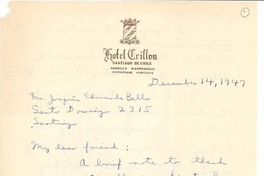 Hotel Crillon
SANTIAGO DE CHILE
December 14, 1947
Mr. Joaquín Edwards Bello
Santo Domingo 2315
Santiago
My dear friend:
A brief note to thank